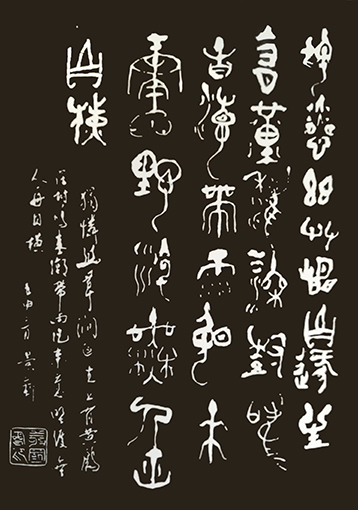 獨憐幽草澗邊生
上有黃鸝深樹鳴
春潮帶雨晚來
急野渡無人舟
自橫
獨憐幽草澗邊生上有黃鸝
深樹鳴春潮帶雨晚來急野渡無
人舟自橫 壬申